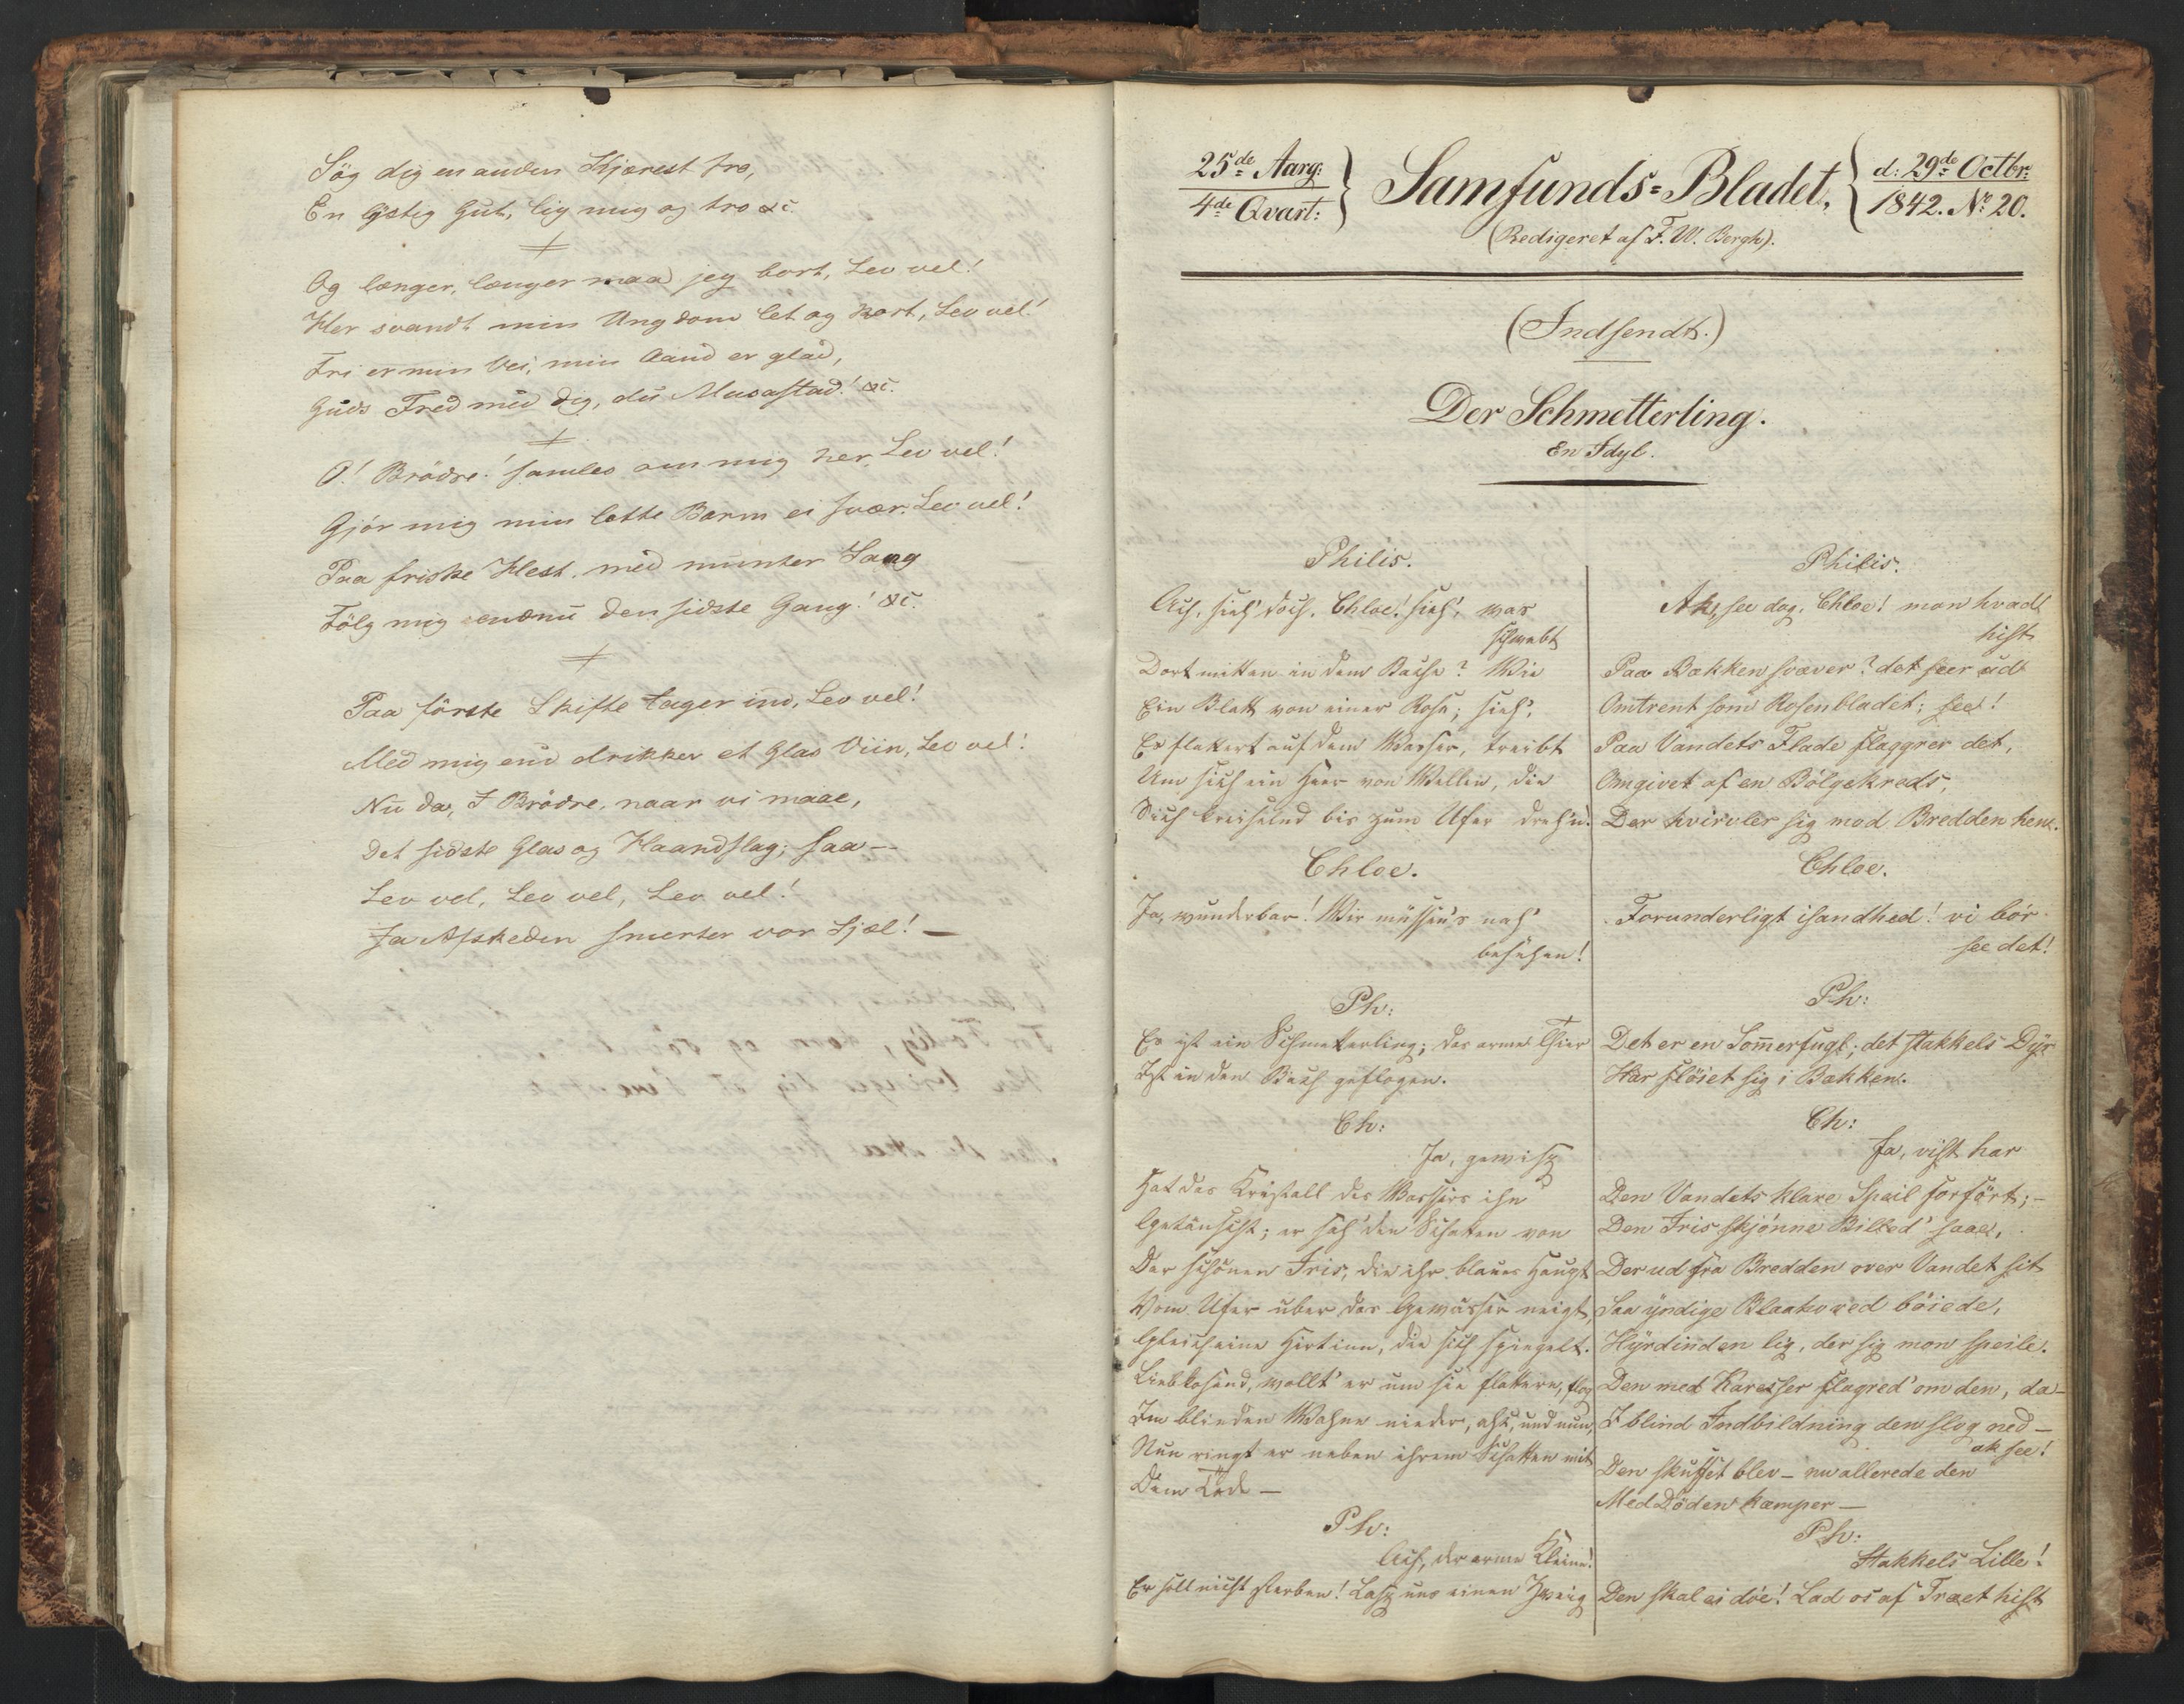 Søg dig en anden Kjærest fro,
En lystig Gut, lig mig og tro &c.
Og længer, længer maa jeg bort, Lev vel!
Her svandt min Ungdom let og kort, Lev vel!
Fri er min Vei, min Aand er glad,
Guds Fred med dig, du Musastad! &c.
O! Brødre! samles om mig her, Lev vel!
Gjør mig min lette Barm ei svær, Lev vel!
Paa friske Hest, med munter Sang
Følg mig endnu den sidste Gang! &c.
Paa første Skifte tager ind, Lev vel!
Med mig end drikker et Glas Viin, Lev vel!
Nu da, I Brødre, naar vi maae,
Det sidste Glas og Haandslag; saa—
Lev vel, Lev vel, Lev vel!
Ja Afskeden smerter vor Sjæl! —
25de Aarg:
4de Qvart:
Samfunds-Bladet,
d: 29de Octbr:
1842. No 20.
(Redigeret af F. W. Bergh).
(Indsendt.)
Der Schmetterling.
En Idyl.
Philis.
Ach, sieh' doch, Chloe! sieh', was
schwebt
Dort mitten in dem Bache? Wie
Ein Blatt von einer Rose; sieh',
Es flattert auf dem Wasser, treibt
Um sich ein Heer von Wellen, die
Sich kreiselnd bis zum Ufer dreh'n.
Chloe.
Ja, wunderbar! Wir müssen's nah'
besehen!
Ph:
Es ist ein Schmetterling; das arme Thier
Ist in den Bach geflogen.
Ch:
Ja, gewisz
Hat das Kristall des Wassers ihn
Getäuscht; er sah' den Schatten von
Der schönen Iris, die ihr blaues Haupt
Vom Ufer über das Gewässer neigt,
Gleich eine Hirtinn, die sich spiegelt.
Liebkosend, wollt' er um sie flattern, flog
Im blinden Wahne nieder, ach, und nun,
Nun ringt er neben ihrem Schatten mit
Dem Tode —
Ph:
Ach, der arme Kleine!
Er soll nicht sterben! Lasz uns einen Zweig
Philis.
Ak, see dog, Chloe! mon hvad
hist
Paa Bækken svæver? det seer ud
Omtrent som Rosenbladet; see!
Paa Vandets Flade flaggrer det,
Omgivet af en Bølgekreds,
Der hvirvler sig mod Bredden hen.
Chloe.
Forunderligt isandhed! vi bør
see det!
Ph:
Det er en Som̅erfugl; det stakkels Dyr
Har fløiet sig i Bækken.
Ch:
Ja, vist har
Den Vandets klare Speil forført; —
Den Iris skjønne Billed' saae,
Der ud fra Bredden over Vandet sit
Saa yndige Blaahoved bøiede,
Hyrdinden lig, der sig mon speile.
Den med Karesser flagred' om den, da —
I blind Indbildning den slog ned —
ak see!
Den skuffet blev — nu allerede den
Med Døden kæmper —
Ph:
Stakkels Lille!
Den skal ei døe! Lad os af Træet hist